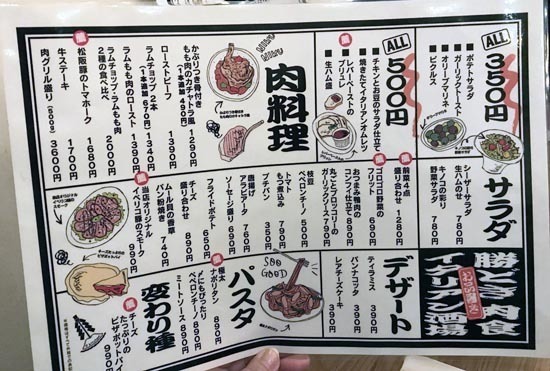 ALL
350円
ポテトサラダ
ガーリックトースト
オリーブマリネ
ピクルス
ALL
500円
チキンとお豆のサラダ仕立て
焼きたてイタリアンオムレツ
レバートーストの
ブリュレ
生ハム盛
肉料理
かぶりつき骨付き
もも肉のカチャトーラ風
(1本追加 490円)
1290
ローストビーフ 1390
ラムチョップ2本 1340
(1本追加 670円)
ラムもも肉のロースト 1390
ラムチョップ・ラムもも肉
2種の食べ比べ
松阪豚のトマホーク 1680
牛ステーキ 1700
肉グリル盛り(600g) 3600
サラダ
シーザーサラダ
生ハムのせ 780円
キノコの彩り
野菜サラダ 780円
前菜4点
盛り合わせ 1280円
ゴロゴロ野菜の
フリット 690円
おつまみ鴨肉の
コンフィ仕立て 890円
丸ごとブロッコリーの
ガーリックソース 790円
枝豆
ペペロンチーノ 500円
トマト
もつ煮込み 790円
プチパン 350円
唐揚げ
アラビアータ 780円
ソーセージ盛り 690円
フライドポテト 650円
チーズ
盛り合わせ 890円
ムール貝の香草
パン粉焼き 740円
当店オリジナル
イベリコ豚のスモーク 990円
勝どき肉食
イタリアン酒場
デザート
ティラミス 390円
パンナコッタ 390円
レアチーズケーキ 390円
SOO
GOOD
パスタ
極太
ナポリタン 890円
〆にもぴったり
ペペロンチーノ 890円
ミートソース 890円
変わり種
チーズ
たっぷりの
ピザポットパイ 990円